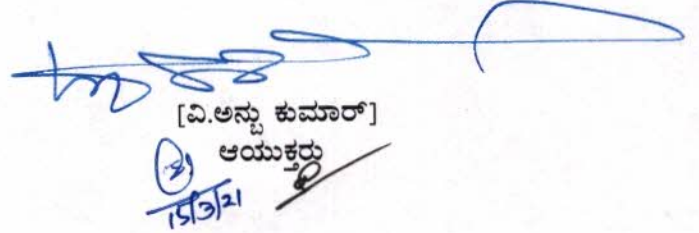 [ವಿ.ಅನ್ಬು ಕುಮಾರ್]
ಆಯುಕ್ತರು
15/3/21